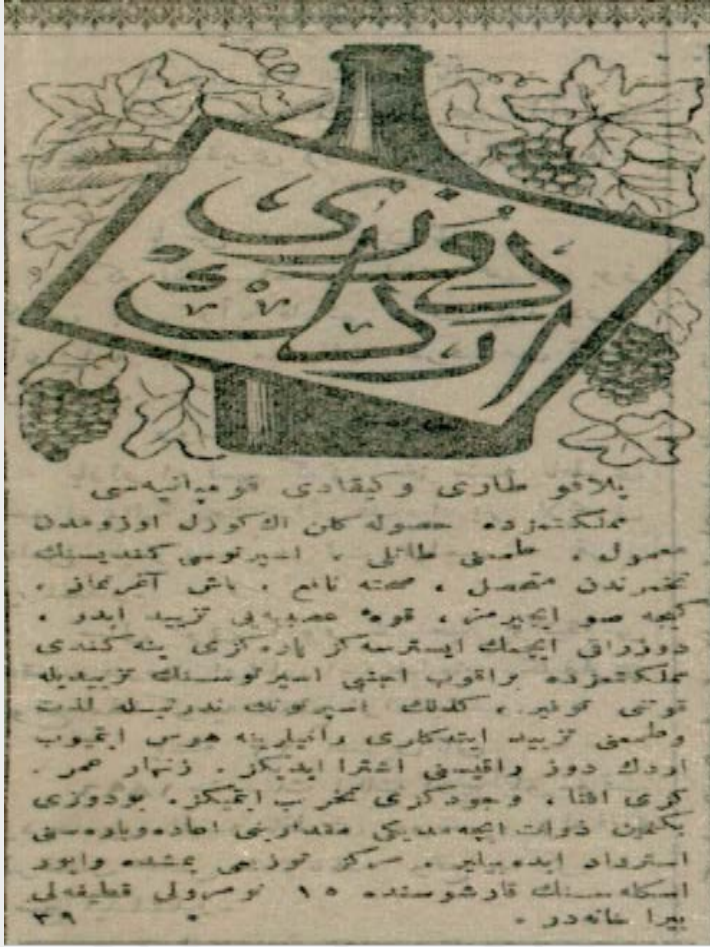 دوزى
اردك
پلاقو طارى وكيقادى قومپانيه‌سى
مملكتمزده حصوله كلن اك كوزل اوزومدن
معمول ، طعمى طاتلى ، اسپرتوسى كنديسنك
تخمرندن متحصل ، صحته نافع ، باش آغرتماز ،
كيجه صو ايچيرمز ، قوهٔ عصبيه‌يى تزييد ايدر ،
دوزراقى ايچمك ايسترسه‌كز پاره‌كزى ينه كندى
مملكتمزده براقوب اجنبى اسپرتوسنك تزييديله
قوتى توفير ، كذلك اسپرتونك ندرتيله لذت
وطعمى تزييد ايتدكارى راقيلرينه هوس ايتميوب
اردك دوز راقيسنى اشترا ايديكز . زنهار عمر
كزى افنا ، وجودكزى تخريب ايتميكز . بودوزى
بكنمين ذوات ايچه‌مديكى مقدارينى اعاده‌وپاره‌سنى
استرداد ايده‌بيلير . مركز توزيعى يمشده واپور
اسكله‌سنك قارشوسنده ١٥ نومرولى قطيفه‌لى
بيرا خانه‌در .
٣٩